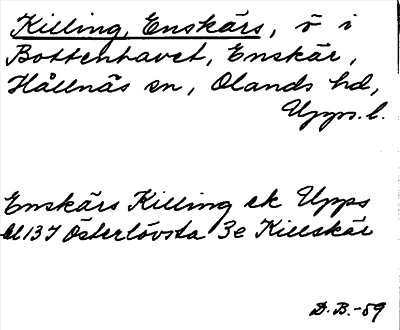 Killing, Enskärs, ö i
Bottenhavet, Enskär,
Hållnäs sn, Olands hd,
Upps. l.
Enskärs Killing ek Upps
bl 137 Österlövsta 3e Killskär
D.B.-59